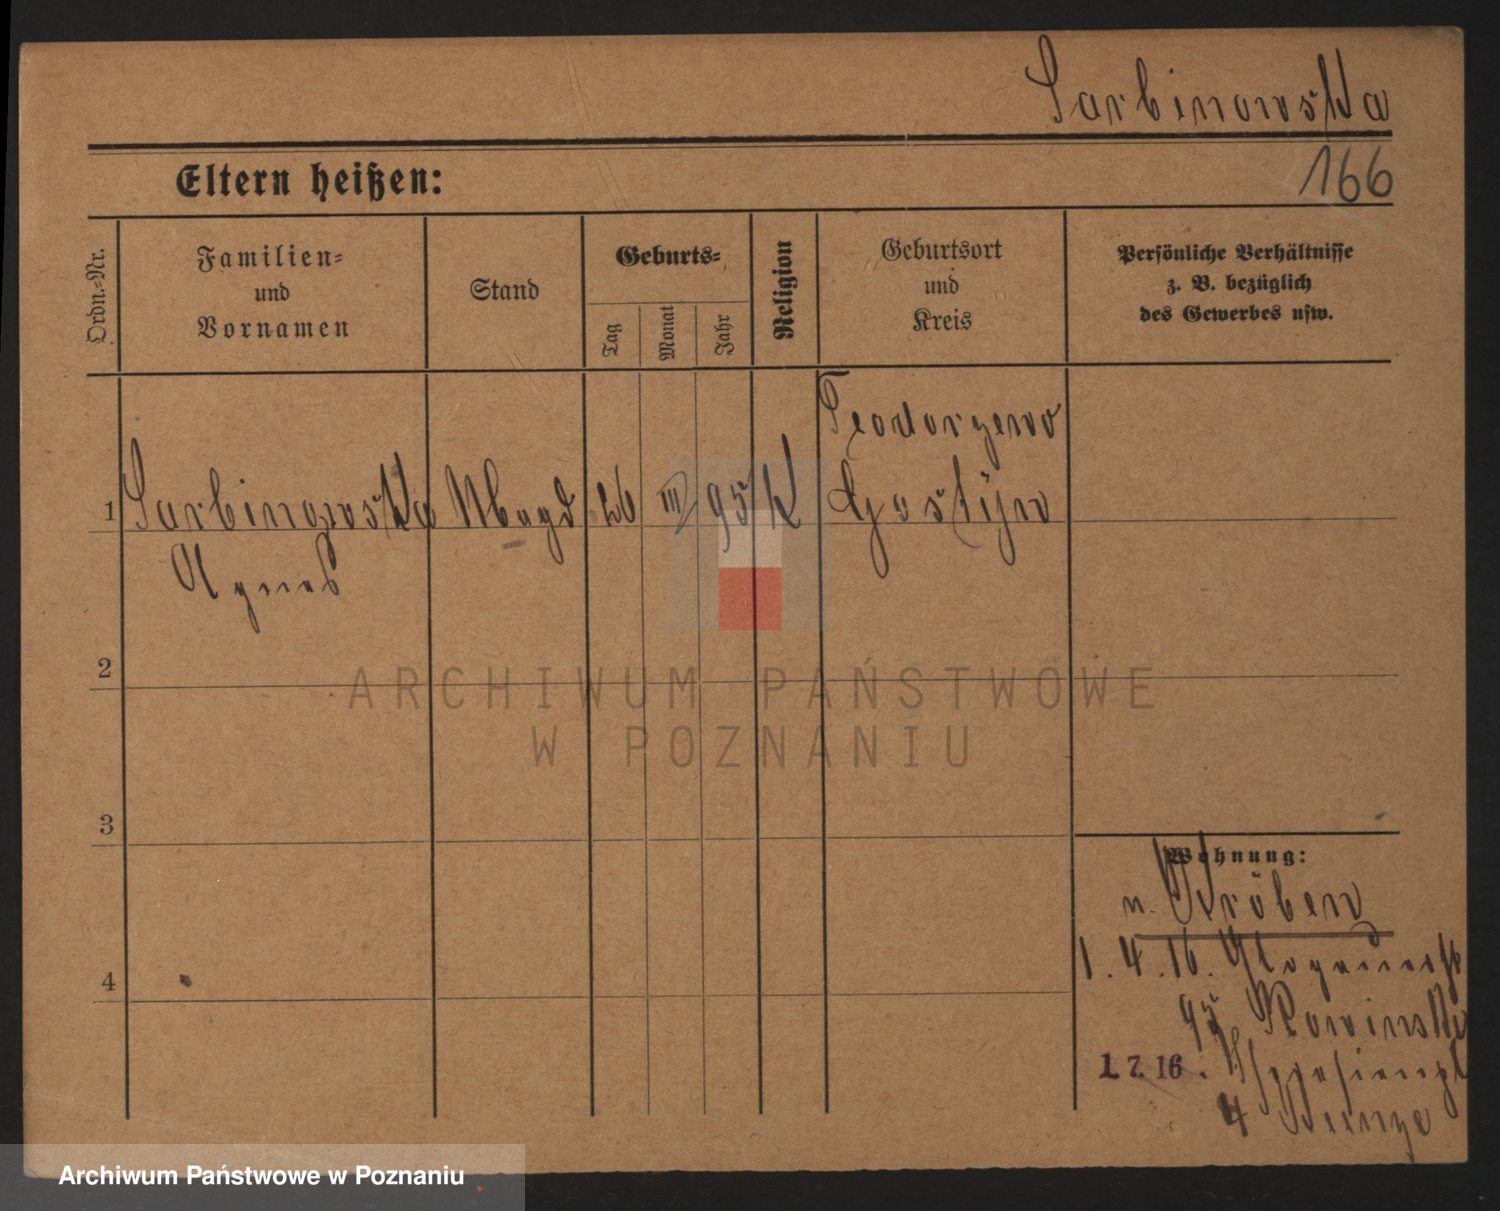 Sarbinowska
166
Eltern heißen:
Ordn.-Nr.
Familien-
und
Vornamen
Stand
Geburts-
Tag
Monat
Jahr
Religion
Geburtsort
und
Kreis
Persönliche Verhältnisse
z. B. bezüglich
des Gewerbes usw.
Teodorzewo
1 Sarbinowska Magd 26 III 95 K Gostyn
Agnes
2
3
4
ARCHIWUM PAŃSTWOWE
W POZNANIU
Wohnung:
n. Kröben
1.4.16. Glogauerstr
95
1.7.16.
4
Archiwum Państwowe w Poznaniu